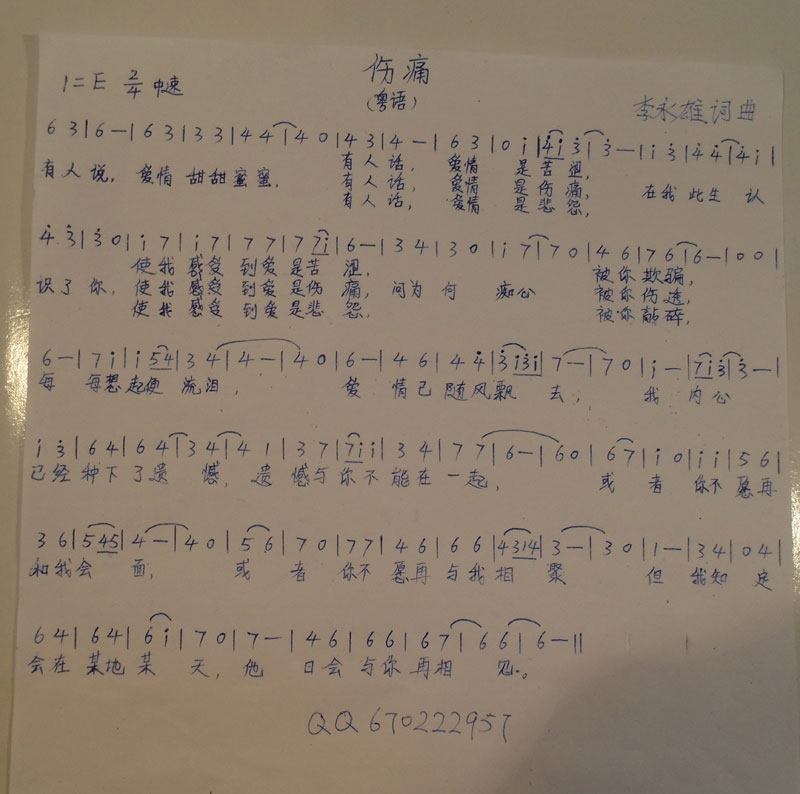 伤痛
1=E 2/4 中速
(粤语)
李永雄词曲
6 3|6 —|6 3|3 3|4 4|4 0|4 3|4 —|6 3|0 i|4i 3|3 —|i 3|4 4|4 i|
有人说，爱情甜甜蜜蜜，有人话，爱情是苦涩，
有人话，爱情是伤痛，在我此生认
有人话，爱情是悲怨，
4 3|3 0|i 7|i 7|7 7|7 7i|6 —|3 4|3 0|i 7|7 0|4 6|7 6|6 —|0 0|
使我感受到爱是苦涩，被你欺骗，
识了你，使我感受到爱是伤痛，问为何痴心被你伤透，
使我感受到爱是悲怨，被你敲碎，
6 —|7 i|i 54|3 4|4 —|4 0|6 —|4 6|4 4|3i3i|7 —|7 0|i —|7i3|3 —|
每每想起便流泪，爱情已随风飘去，我内心
i 3|6 4|6 4|3 4|4 1|3 7|7i i|3 4|7 7|6 —|6 0|6 7|i 0|i i|5 6|
已经种下了遗憾，遗憾与你不能在一起，或者你不愿再
3 6|545|4 —|4 0|5 6|7 0|7 7|4 6|6 6|4314|3 —|3 0|1 —|3 4|0 4|
和我会面，或者你不愿再与我相聚但我知定
6 4|6 4|6 i|7 0|7 —|4 6|6 6|6 7|6 6|6 —||
会在某地某天，他日会与你再相见。
QQ670222957